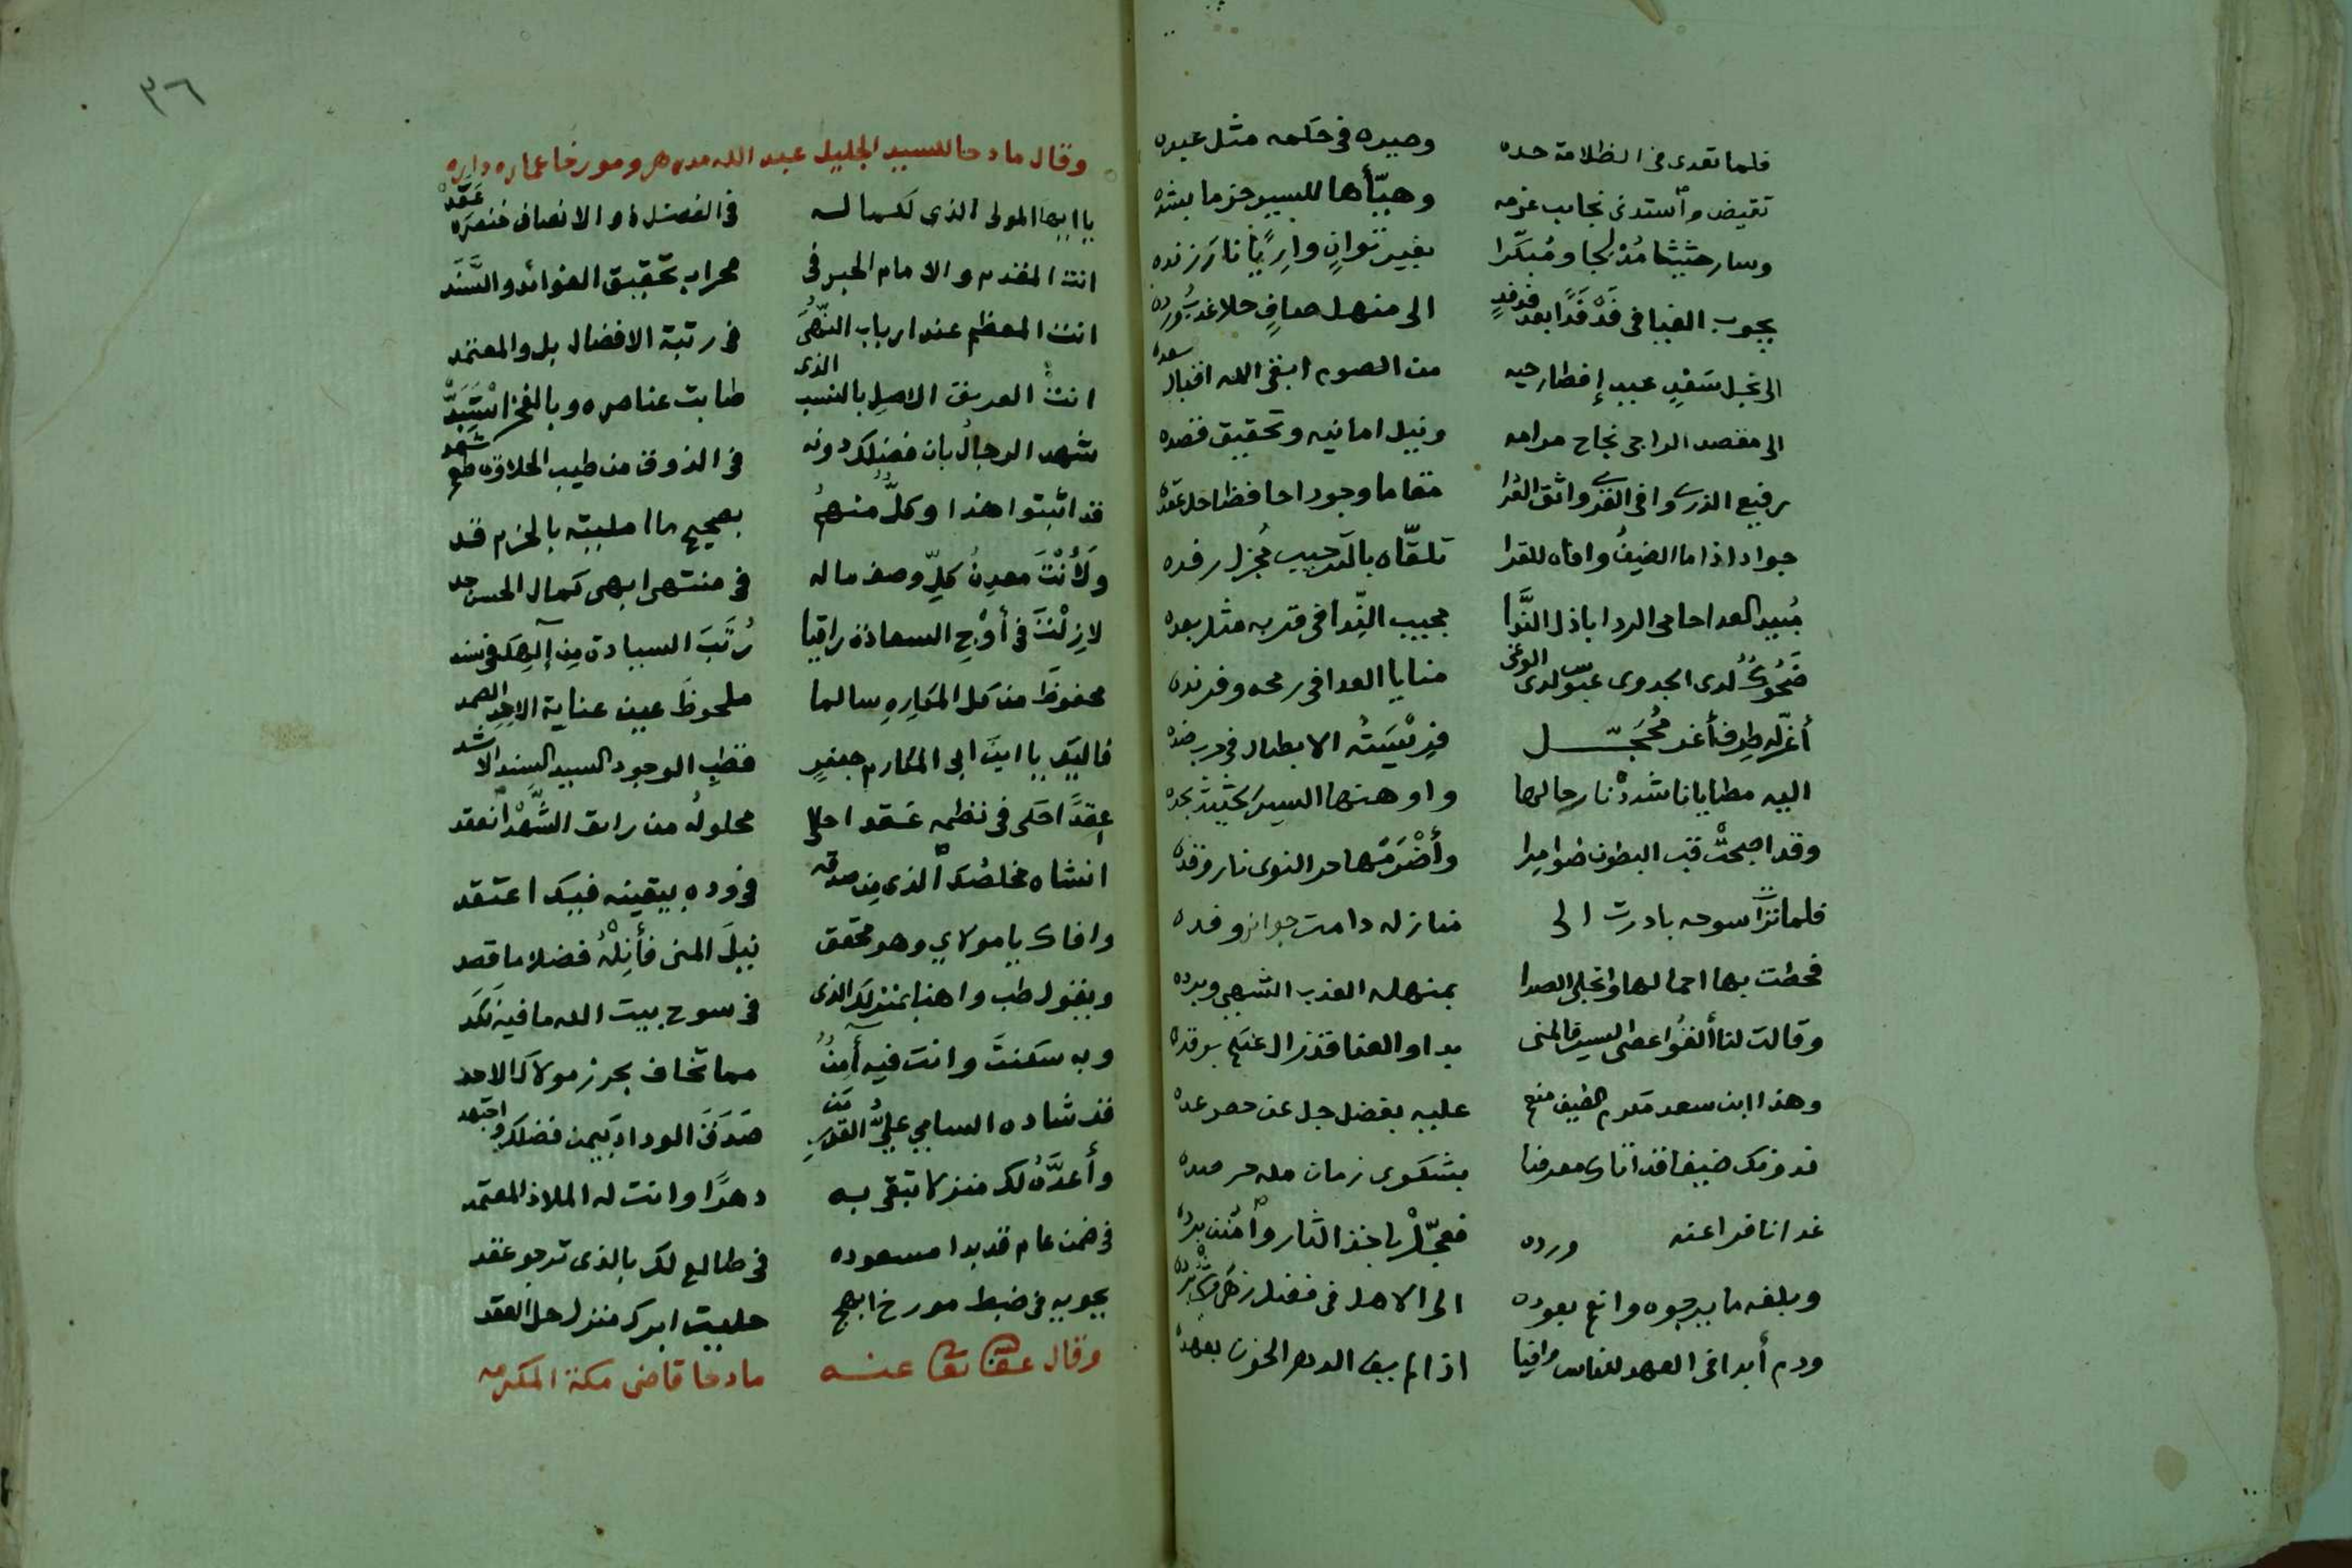 فلما تعدى في الظلامة حده وصيره في حكمه مثل عبده
تقيض واستدنى نجايب عزمه وهيّأها للسير حزما بشده
وسار حثيثا مُدْلجا ومُبكّرا بغير توانٍ وارِيًا نار زنده
يجوب الفيافي فَدْفَدًا بعد فدفدٍ الى منهل صافٍ حلا عند ورده
الى نجل سَعْدٍ عبيد إفطار حيه من الصوم ابقى الله اقبال سعده
الى مقصد الراجي نجاح مرامه ونيل امانيه وتحقيق قصده
رفيع الذرى وافي القرى واثق العرا مقاما وجودا حافظا حل عقده
جواد اذا ما الضيفُ وافاه للقرا تلقّاه بالترحيب مُجزل رفده
مُبيد العدا حامي الردا باذل النَّدا مجيب النِّدا في قربه مثل بعده
ضَحُوكٌ لدى الجدوى عبوسٌ لدى الوغى منايا العدا في رمحه وفرنده
أغرّ له طرف أغر مُحَجّل فريسته الابطال في حرب ضده
اليه مطايانا شددْنا رحالها واوهنها السير الحثيث بجده
وقد اصبحتْ قب البطون ضوامرا وأضْرَمَها حر النوى نار وقده
فلما تراءت سوحه بادرت الى منازله دامت جوائز وفده
فحطت بها احمالها وانجلى الصدا بمنهله العذب الشهي وبرده
وقالت لنا ألقُوا عصى السير فالمنى بدا والعنا قد زال عنكم بوقده
وهذا ابن سعد مكرم الضيف منعم عليه بفضل جل عن حصر عده
فدونك ضيفا قد اتاك معرفا بشكوى زمان مله حر صده
غدا نافرا عنه ورده فعجّلْ باخذ الثار وامنن برده
وبلغه ما يرجوه وانعم بعوده الى الاهل في فضل زهى وشي برده
ودم أبدا في العهد للناس وافيا اذا لم يف الدهر الخون بعهده
٣٦
وقال مادحا للسيد الجليل عبد الله مدهر ومورخا عماره داره
يا ايها المولى الذي لكماله في الفضل ذو الانصاف خنصره عَقَدْ
انت المقدم والامام الحبر في محراب تحقيق الفوائد والسَّنَد
انت المعظم عند ارباب النُّهى في رتبة الافضال بل والمعتمد
انت العريق الاصل بالنسب الذي طابت عناصره وبالفخر اسْتَبَدّْ
شهد الرجال بان فضلك دونه في الذوق من طيب الحلاوة طعم شهد
قد اثبتوا هذا وكلٌّ منهمُ بصحيح ما امليته بالجزم قد
ولأنْتَ معدِنُ كلِّ وصف ماله في منتهى ابهى كمال الحسن حد
لازِلْتَ في أوْجِ السعادة راقيا رُتَبَ السيادة مِن إلهِك في سند
محفوظَ من كل المكارِهِ سالما ملحوظَ عين عناية الاحد الصمد
فاليك يا ابن ابي المكارم جعفرٍ قطبِ الوجود السيد السند الاشد
عِقدًا احكى في نظمه عَقد احلى محلولُه من رائق الشّهْد انعقد
انشاه مخلصُك الذي من صدقه في وده بيقينه فيك اعتقد
وافاك يا مولاي وهو محقق نيلَ المنى فأنِلْهُ فضلا ما قصد
ويقول طب واهنا بمنزلك الذي في سوح بيت الله ما فيه نَكَد
وبه سكنتَ وانت فيه آمِنٌ مما تخاف بحرز مولاك الاحد
قد شاده السامي عليُّ القدر مَن صَدَقَ الوداد بيمن فضلك واجتهد
وأعدَّه لك منزلا تبقى به دهرًا وانت له الملاذ المعتمد
في ضمن عام قد بدا مسعوده في طالع لك بالذي ترجو عقد
بجوبه في ضبط مورخ ابهج حليت ابرك منزل حل العقد
وقال عفا الله تعالى عنه مادحا قاضى مكة المكرمه